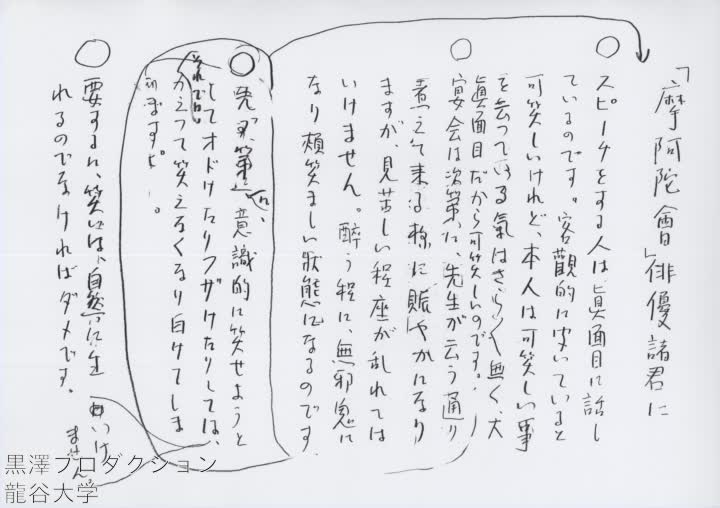 「摩阿陀會」俳優諸君に
○スピーチをする人は眞面目に話し
ているのです。客観的に聞いていると
可笑しいけれど、本人は可笑しい事
を云っている氣はさらく無く、大
眞面目だから可笑しいのです。
○宴会は次第に、先生が云う通り
煮えて来る様に賑やかになり
ますが、見苦しい程座が乱れては
いけません。酔う程に、無邪鬼に
なり頬笑ましい状態になるのです。
○先づ第一に、意識的に笑せようと
してオドケたりフザけたりしては、いけません。
それではかえって笑えなくなり白けてしま
います。
○要するに、笑いは、自然に生
れるのでなければダメです。
黒澤プロダクション
龍谷大学